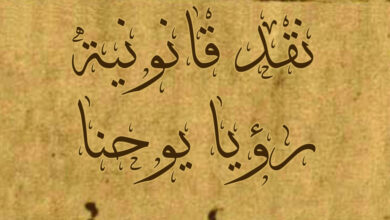 نقد قانونية
رؤيا يوحنا